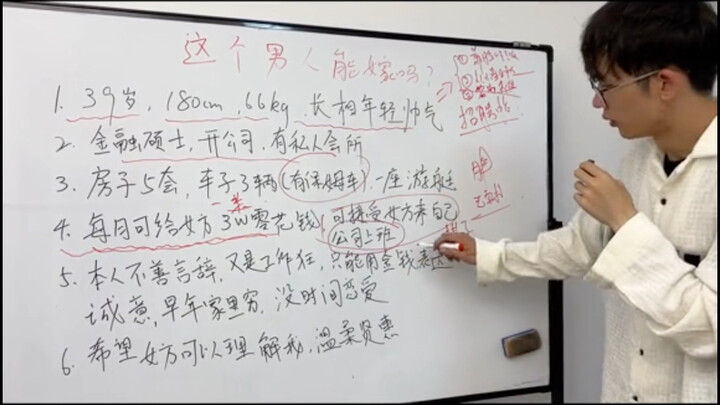 这个男人能嫁吗?
1. 39岁, 180cm, 66kg, 长相年轻帅气
2. 金融硕士, 开公司, 有私人会所
3. 房子5套, 车子3辆(有保姆车), 一座游艇
4. 每月可给女方3W零花钱, 可接受女方来自己
公司上班
5. 本人不善言辞, 又是工作狂, 只能用金钱表达
诚意, 早年家里穷, 没时间恋爱
6. 希望女方可以理解我, 温柔贤惠
①
②
③
招聘